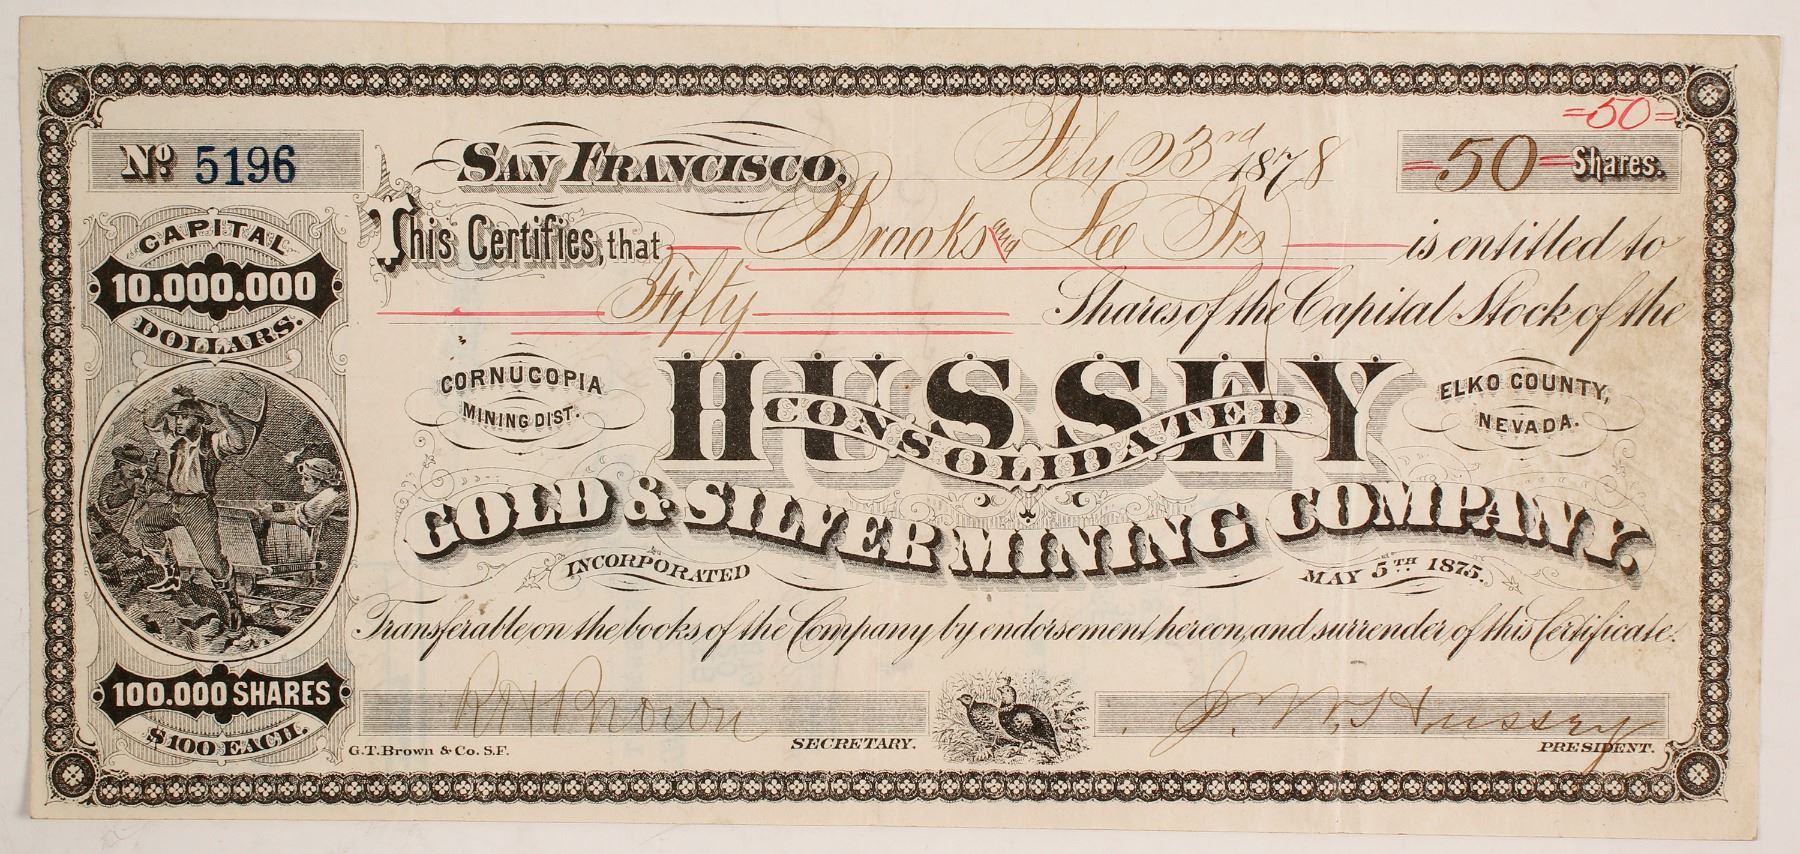 =50=
No. 5196
SAN FRANCISCO, Feby 23rd 1878
=50= Shares.
This Certifies, that Brooks and Lee Trs is entitled to
Fifty Shares of the Capital Stock of the
CAPITAL
10.000.000
DOLLARS.
CORNUCOPIA
MINING DIST.
HUSSEY
CONSOLIDATED
ELKO COUNTY,
NEVADA.
GOLD & SILVER MINING COMPANY.
INCORPORATED MAY 5TH 1875.
Transferable on the books of the Company by endorsement hereon, and surrender of this Certificate.
100.000 SHARES
$100 EACH.
R H Brown
SECRETARY.
J. W. Hussey
PRESIDENT.
G.T. Brown & Co. S.F.